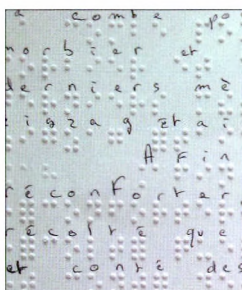 a combe po
morbier et
derniers mè
igzagEtai
Afin
réconForter,
récolté que
et conté des